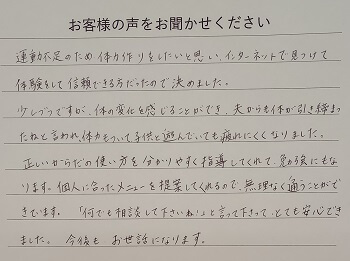 お客様の声をお聞かせください
運動不足のため体力作りをしたいと思い、インターネットで見つけて
体験をして信頼できる方だったので決めました。
少しづつですが、体の変化を感じることができ、夫からも体が引き締まっ
たねと言われ、体力もついて子供と遊んでいても疲れにくくなりました。
正しいからだの使い方を分かりやすく指導してくれて、勉強にもな
ります。個人に合ったメニューを提案してくれるので、無理なく通うことがで
きています。「何でも相談して下さいね!」と言って下さって、とても安心でき
ました。今後も お世話になります。